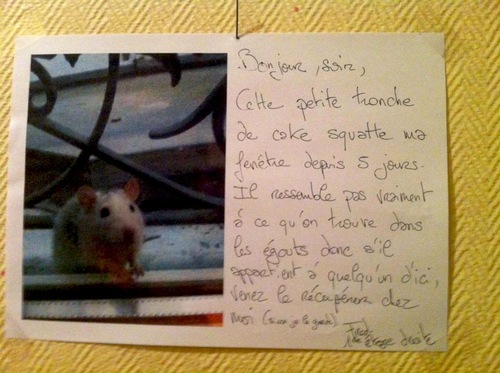 Bonjour, soir,
Cette petite tronche
de cake squatte ma
fenêtre depuis 5 jours.
Il ressemble pas vraiment
à ce qu'on trouve dans
les égouts donc s'il
appartient à quelqu'un d'ici,
venez le récupérer chez
moi (sinon je le garde)
étage droite